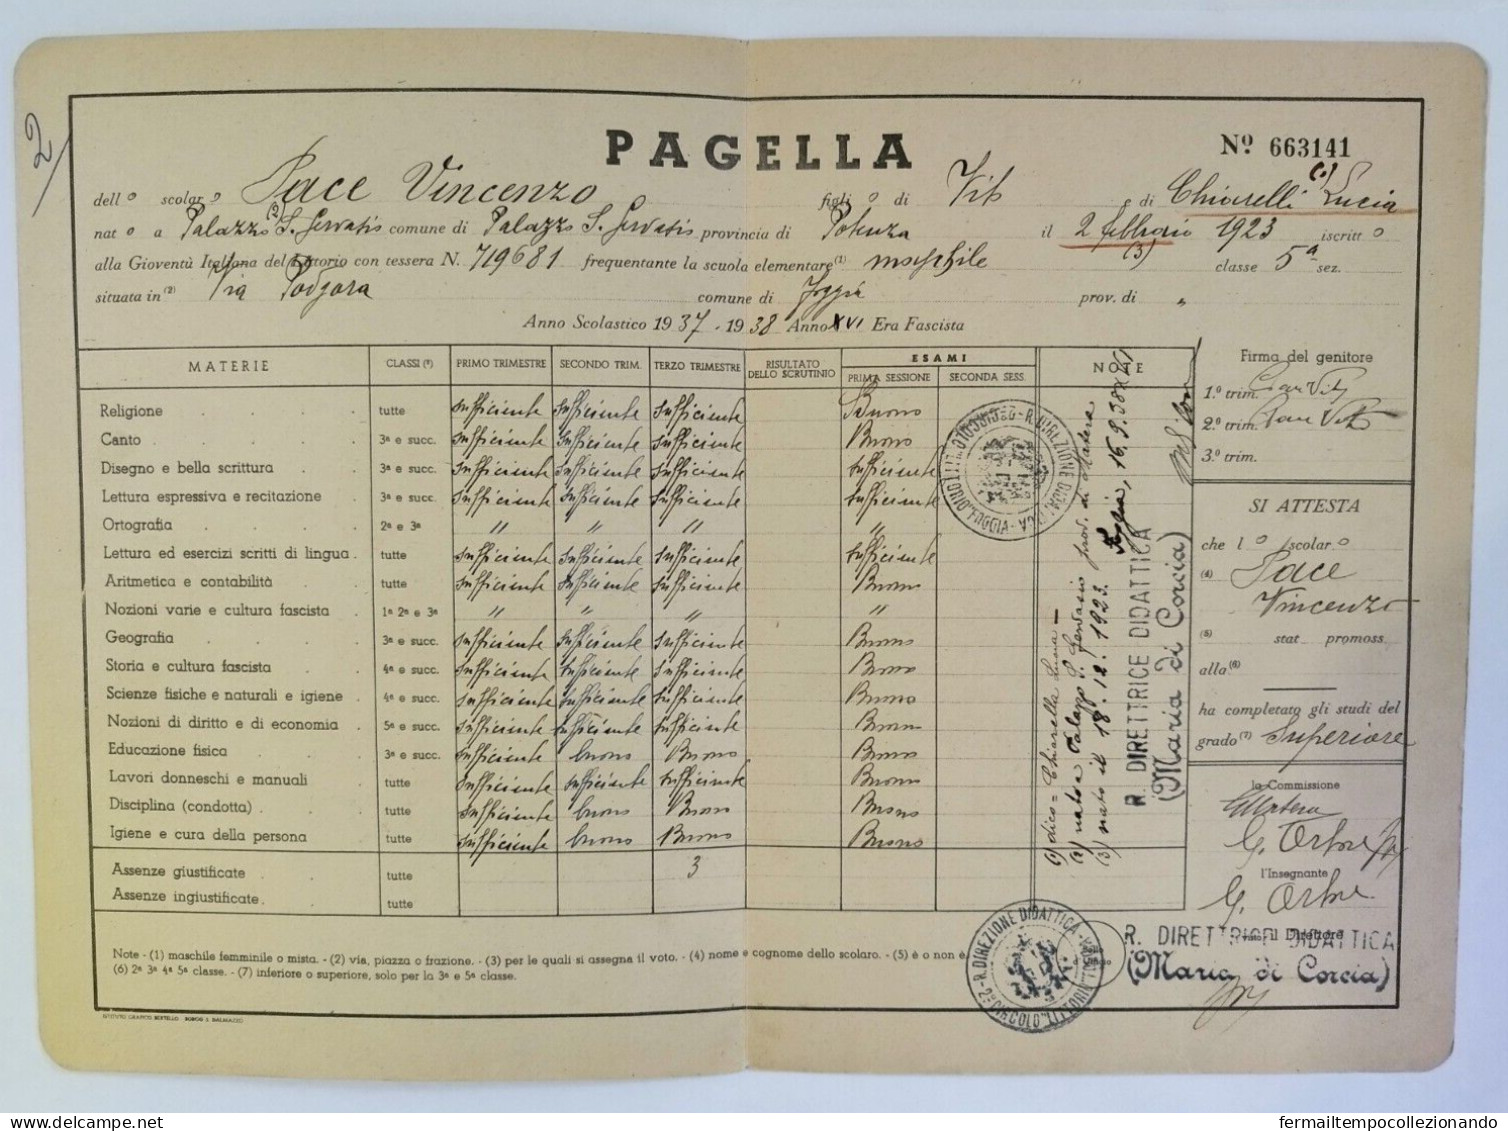 2
PAGELLA
Nº 663141
dell o scolar o Pace Vincenzo figli o di Vito e di Chiarelli (1) Lucia
nat o a Palazzo (2) S. Gervasio comune di Palazzo S. Gervasio provincia di Potenza il 2 febbraio (3) 1923 iscritt o
alla Gioventù Italiana del Littorio con tessera N. 719681 frequentante la scuola elementare (1) maschile classe 5ª sez.
situata in (2) Via Podgora comune di Foggia prov. di „
Anno Scolastico 1937 - 1938 Anno XVI Era Fascista
MATERIE CLASSI (3) PRIMO TRIMESTRE SECONDO TRIM. TERZO TRIMESTRE RISULTATO DELLO SCRUTINIO ESAMI PRIMA SESSIONE SECONDA SESS. NOTE
Religione tutte sufficiente sufficiente sufficiente Buono
Canto 3ª e succ. sufficiente sufficiente sufficiente Buono
Disegno e bella scrittura 3ª e succ. sufficiente sufficiente sufficiente sufficiente
Lettura espressiva e recitazione 3ª e succ. sufficiente sufficiente sufficiente sufficiente
Ortografia 2ª e 3ª " " " "
Lettura ed esercizi scritti di lingua tutte sufficiente sufficiente sufficiente sufficiente
Aritmetica e contabilità tutte sufficiente sufficiente sufficiente Buono
Nozioni varie e cultura fascista 1ª 2ª e 3ª " " " "
Geografia 3ª e succ. sufficiente sufficiente sufficiente Buono
Storia e cultura fascista 4ª e succ. sufficiente sufficiente sufficiente Buono
Scienze fisiche e naturali e igiene 4ª e succ. sufficiente sufficiente sufficiente Buono
Nozioni di diritto e di economia 5ª e succ. sufficiente sufficiente sufficiente Buono
Educazione fisica 3ª e succ. sufficiente buono Buono Buono
Lavori donneschi e manuali tutte sufficiente sufficiente sufficiente Buono
Disciplina (condotta) tutte sufficiente buono Buono Buono
Igiene e cura della persona tutte sufficiente buono Buono Buono
Assenze giustificate tutte 3
Assenze ingiustificate tutte
Note - (1) maschile femminile o mista. - (2) via, piazza o frazione. - (3) per le quali si assegna il voto. - (4) nome e cognome dello scolaro. - (5) è o non è.
(6) 2ª 3ª 4ª 5ª classe. - (7) inferiore o superiore, solo per la 3ª e 5ª classe.
ISTITUTO GRAFICO BERTELLO - BORGO S. DALMAZZO
(1) dico = Chiarella Lucia =
(2) nato a Palazzo S. Gervasio prov. di Matera
(3) nato il 18.12.1923. Foggia, 16.9.38 XVI
R. DIRETTRICE DIDATTICA
(Maria di Corcia)
Firma del genitore
1.º trim. Pace Vito
2.º trim. Pace Vito
3.º trim.
SI ATTESTA
che l o scolar o
(4) Pace
Vincenzo
(5) stat promoss
alla (6)
ha completato gli studi del
grado (7) Superiore
la Commissione
G. Ortore
l'Insegnante
G. Ortore
il Direttore
R. DIRETTRICE DIDATTICA
(Maria di Corcia)
R. DIREZIONE DIDATTICA
FOGGIA
2º CIRCOLO
fermailtempocollezionando